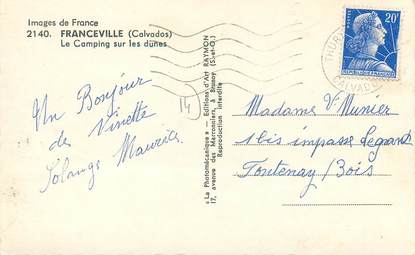 Images de France
2140. FRANCEVILLE (Calvados)
Le Camping sur les dunes
Un Bonjour
de Vinette
Solange Maurice
14
« La Photomécanique » - Editions d'Art RAYMON
17, avenue des Marronniers, à Brunoy (S.-et-O.)
Reproduction interdite
20F
REPUBLIQUE FRANÇAISE
CALVADOS
Madame Vᵉ Munier
1 bis impasse Legrand
Fontenay / Bois